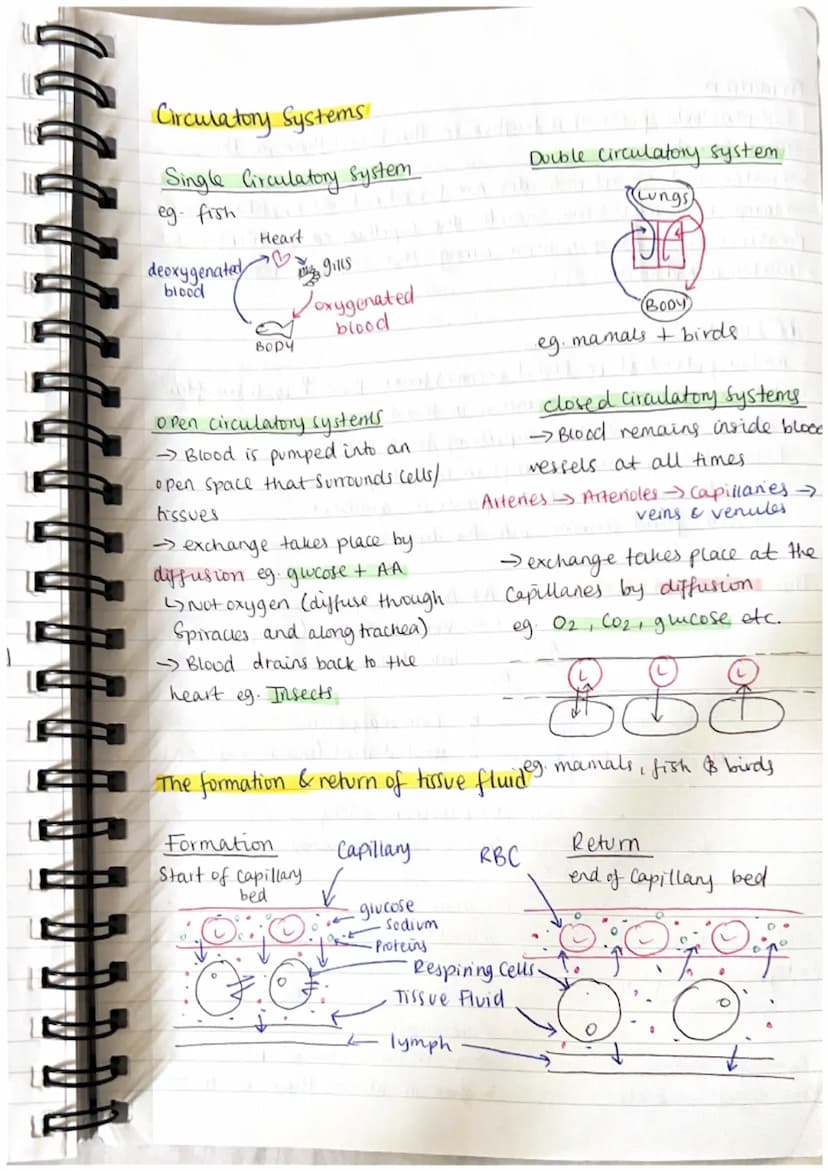 Circulatory Systems
Single Circulatory System
eg. fish
Heart
deoxygenated
blood
gills
oxygenated
blood
BODY
Double circulatory system
Lungs
BODY
eg. mamals + birds
open circulatory systems
→ Blood is pumped into an
open space that surrounds cells/
tissues
→ exchange takes place by
diffusion eg. glucose + AA
↳ Not oxygen (diffuse through
Spiracles and along trachea)
→ Blood drains back to the
heart eg. Insects
closed circulatory systems
→ Blood remains inside blood
vessels at all times
Arteries → Arterioles → capillaries →
veins & venules
→ exchange takes place at the
capillaries by diffusion
eg. O2, CO2, glucose etc.
eg. mamals, fish & birds
The formation & return of tissue fluid
Formation
Start of capillary
bed
Capillary
glucose
sodium
proteins
Respiring Cells
Tissue Fluid
lymph
RBC
Return
end of capillary bed